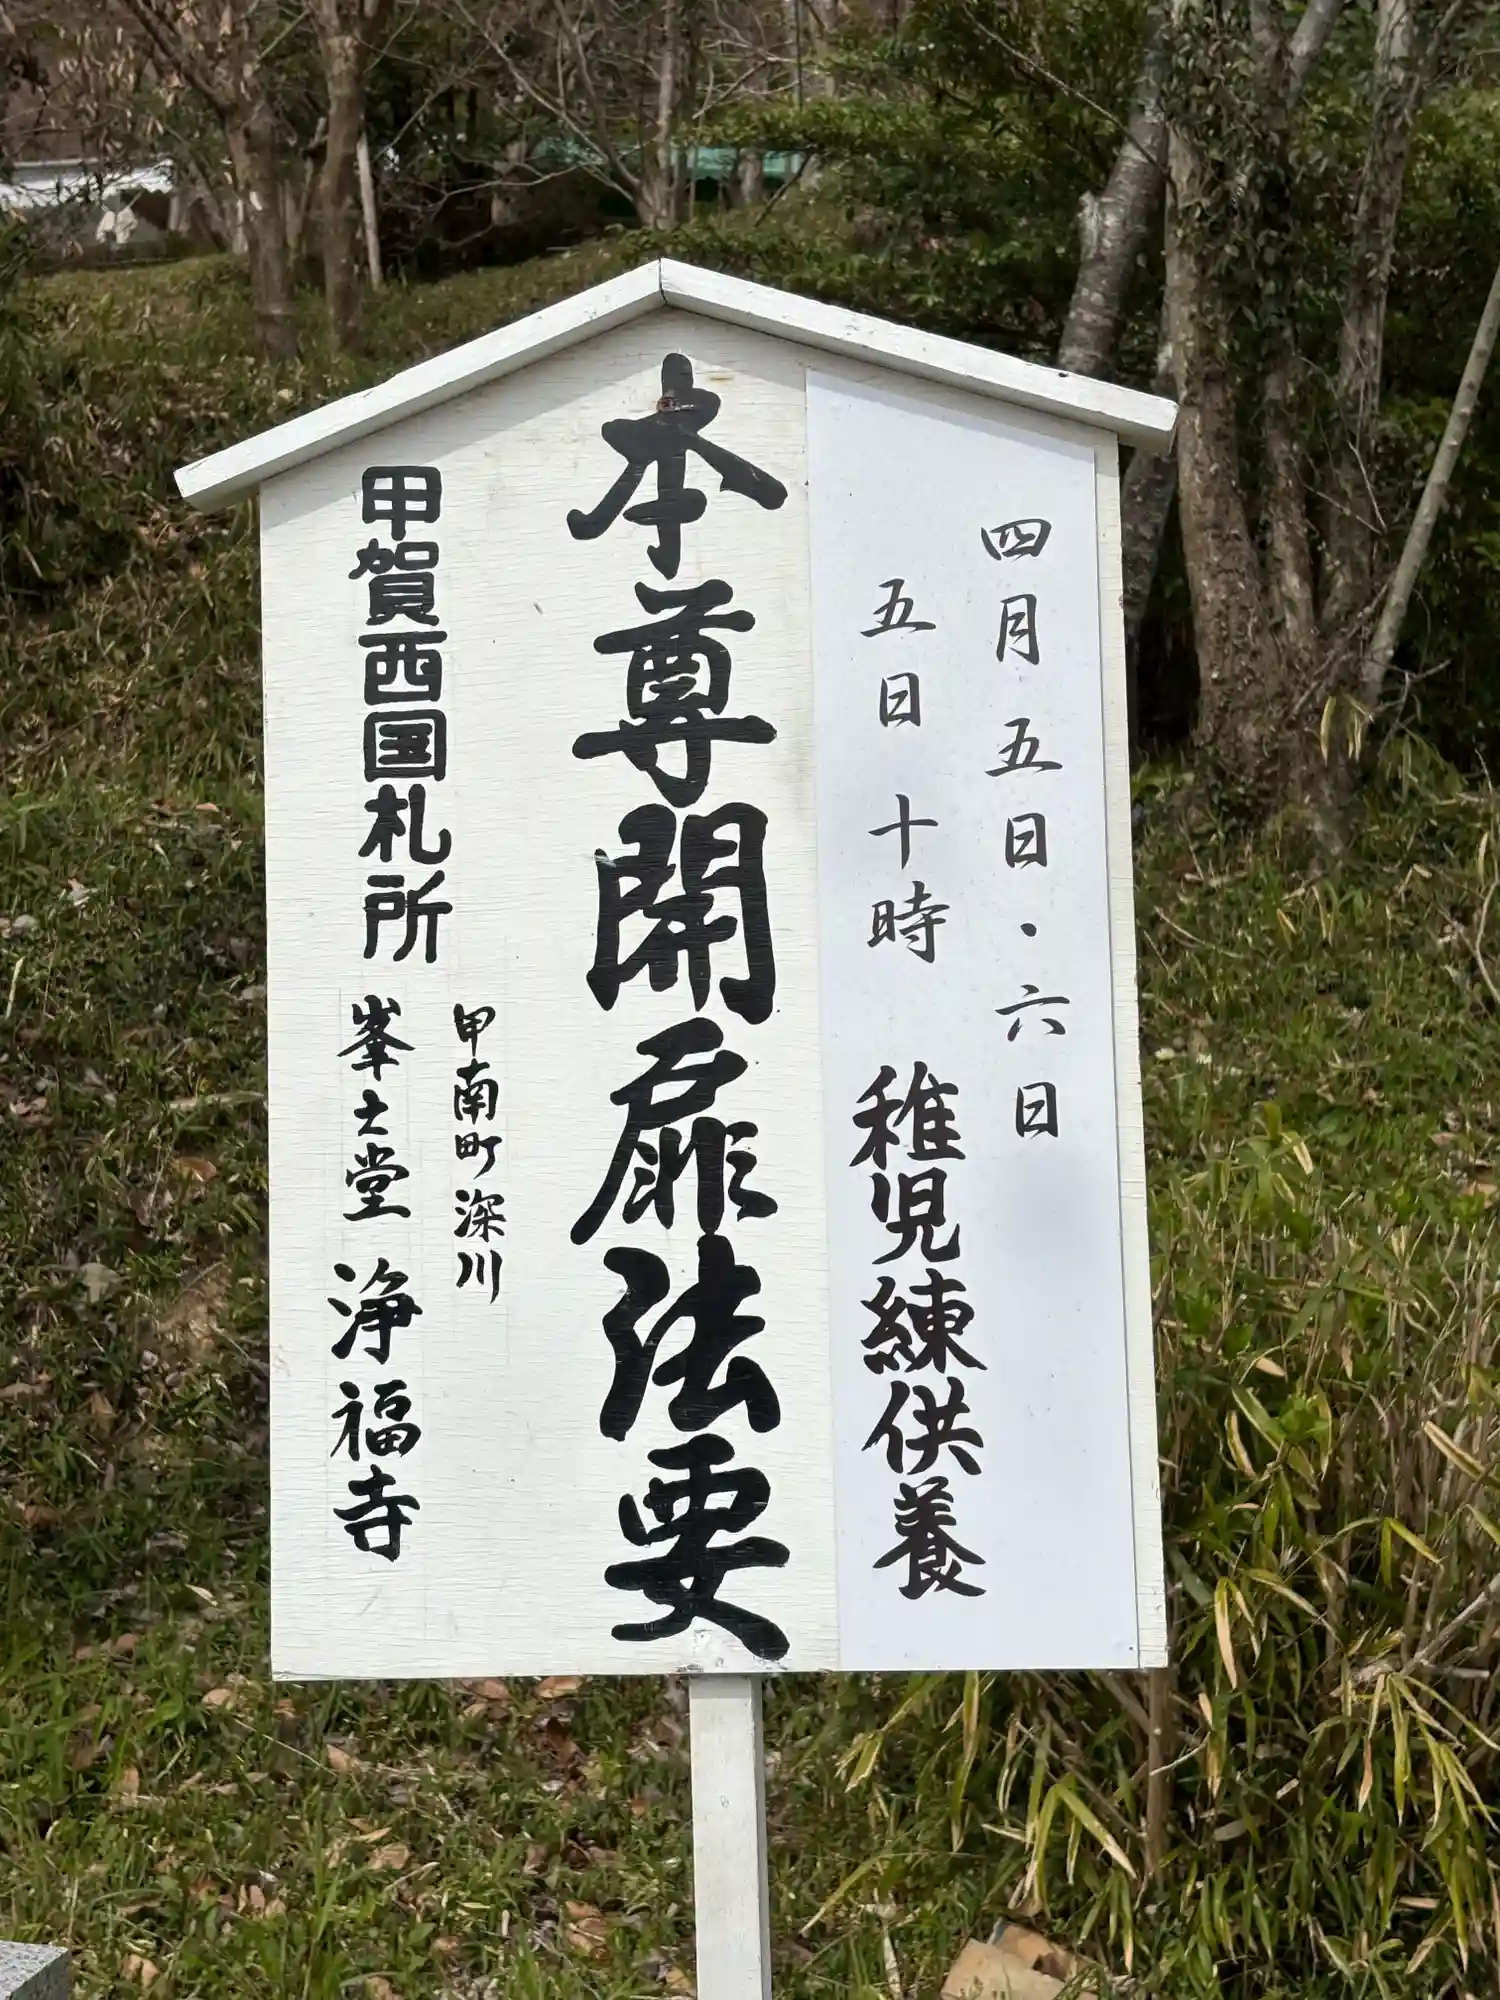 四月五日・六日
五日十時 稚児練供養
本尊開扉法要
甲南町深川
甲賀西国札所 峯士堂 浄福寺